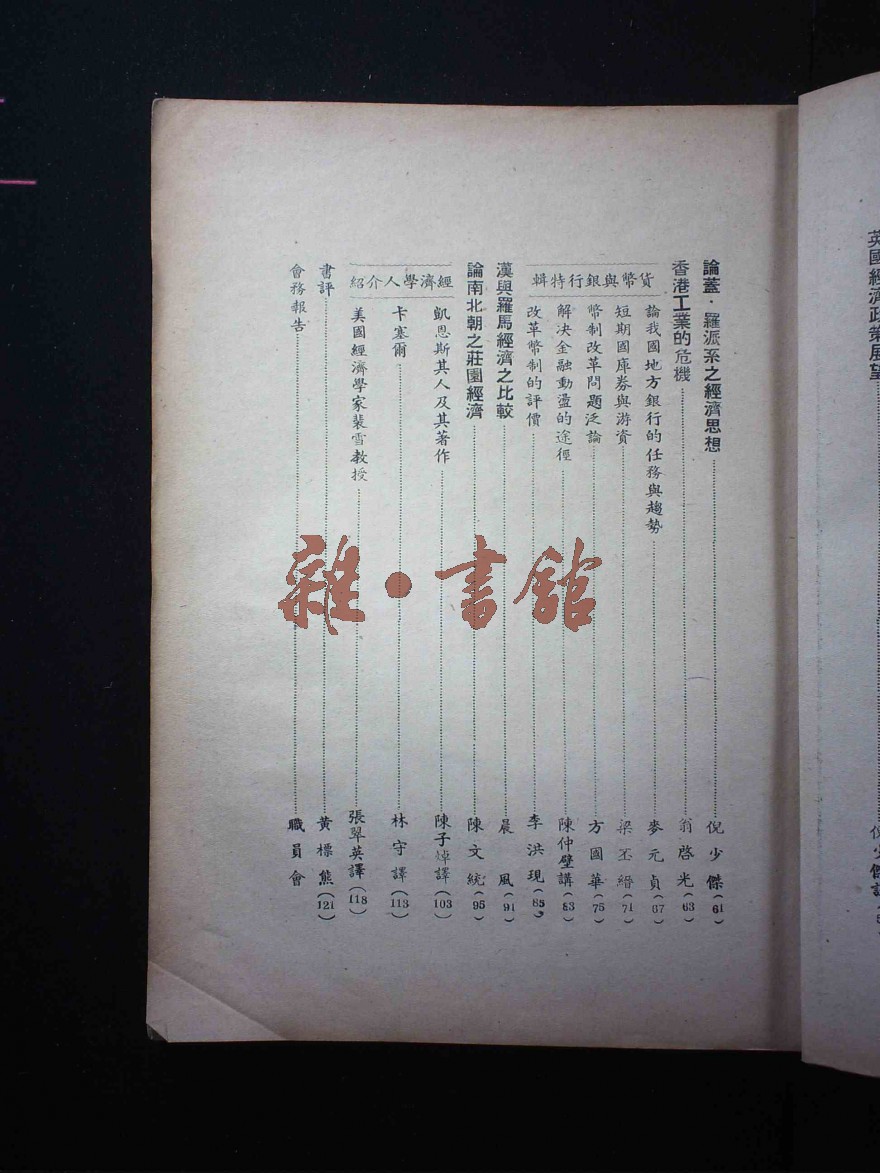 英國經濟政策展望
倪少傑
論蓋·羅派系之經濟思想 倪少傑(61)
香港工業的危機 翁啓光(63)
貨幣與銀行特輯
論我國地方銀行的任務與趨勢 麥元貞(67)
短期國庫券與游資 梁丕縉(71)
幣制改革問題泛論 方國華(75)
解決金融動盪的途徑 陳仲壁講(83)
改革幣制的評價 李洪現(85)
漢與羅馬經濟之比較 晨風(91)
論南北朝之莊園經濟 陳文統(95)
經濟學人介紹
凱恩斯其人及其著作 陳子焯譯(103)
卡塞爾 林守譯(113)
美國經濟學家裴雪教授 張翠英譯(118)
書評 黃標熊(121)
會務報告 職員會
雜·書館